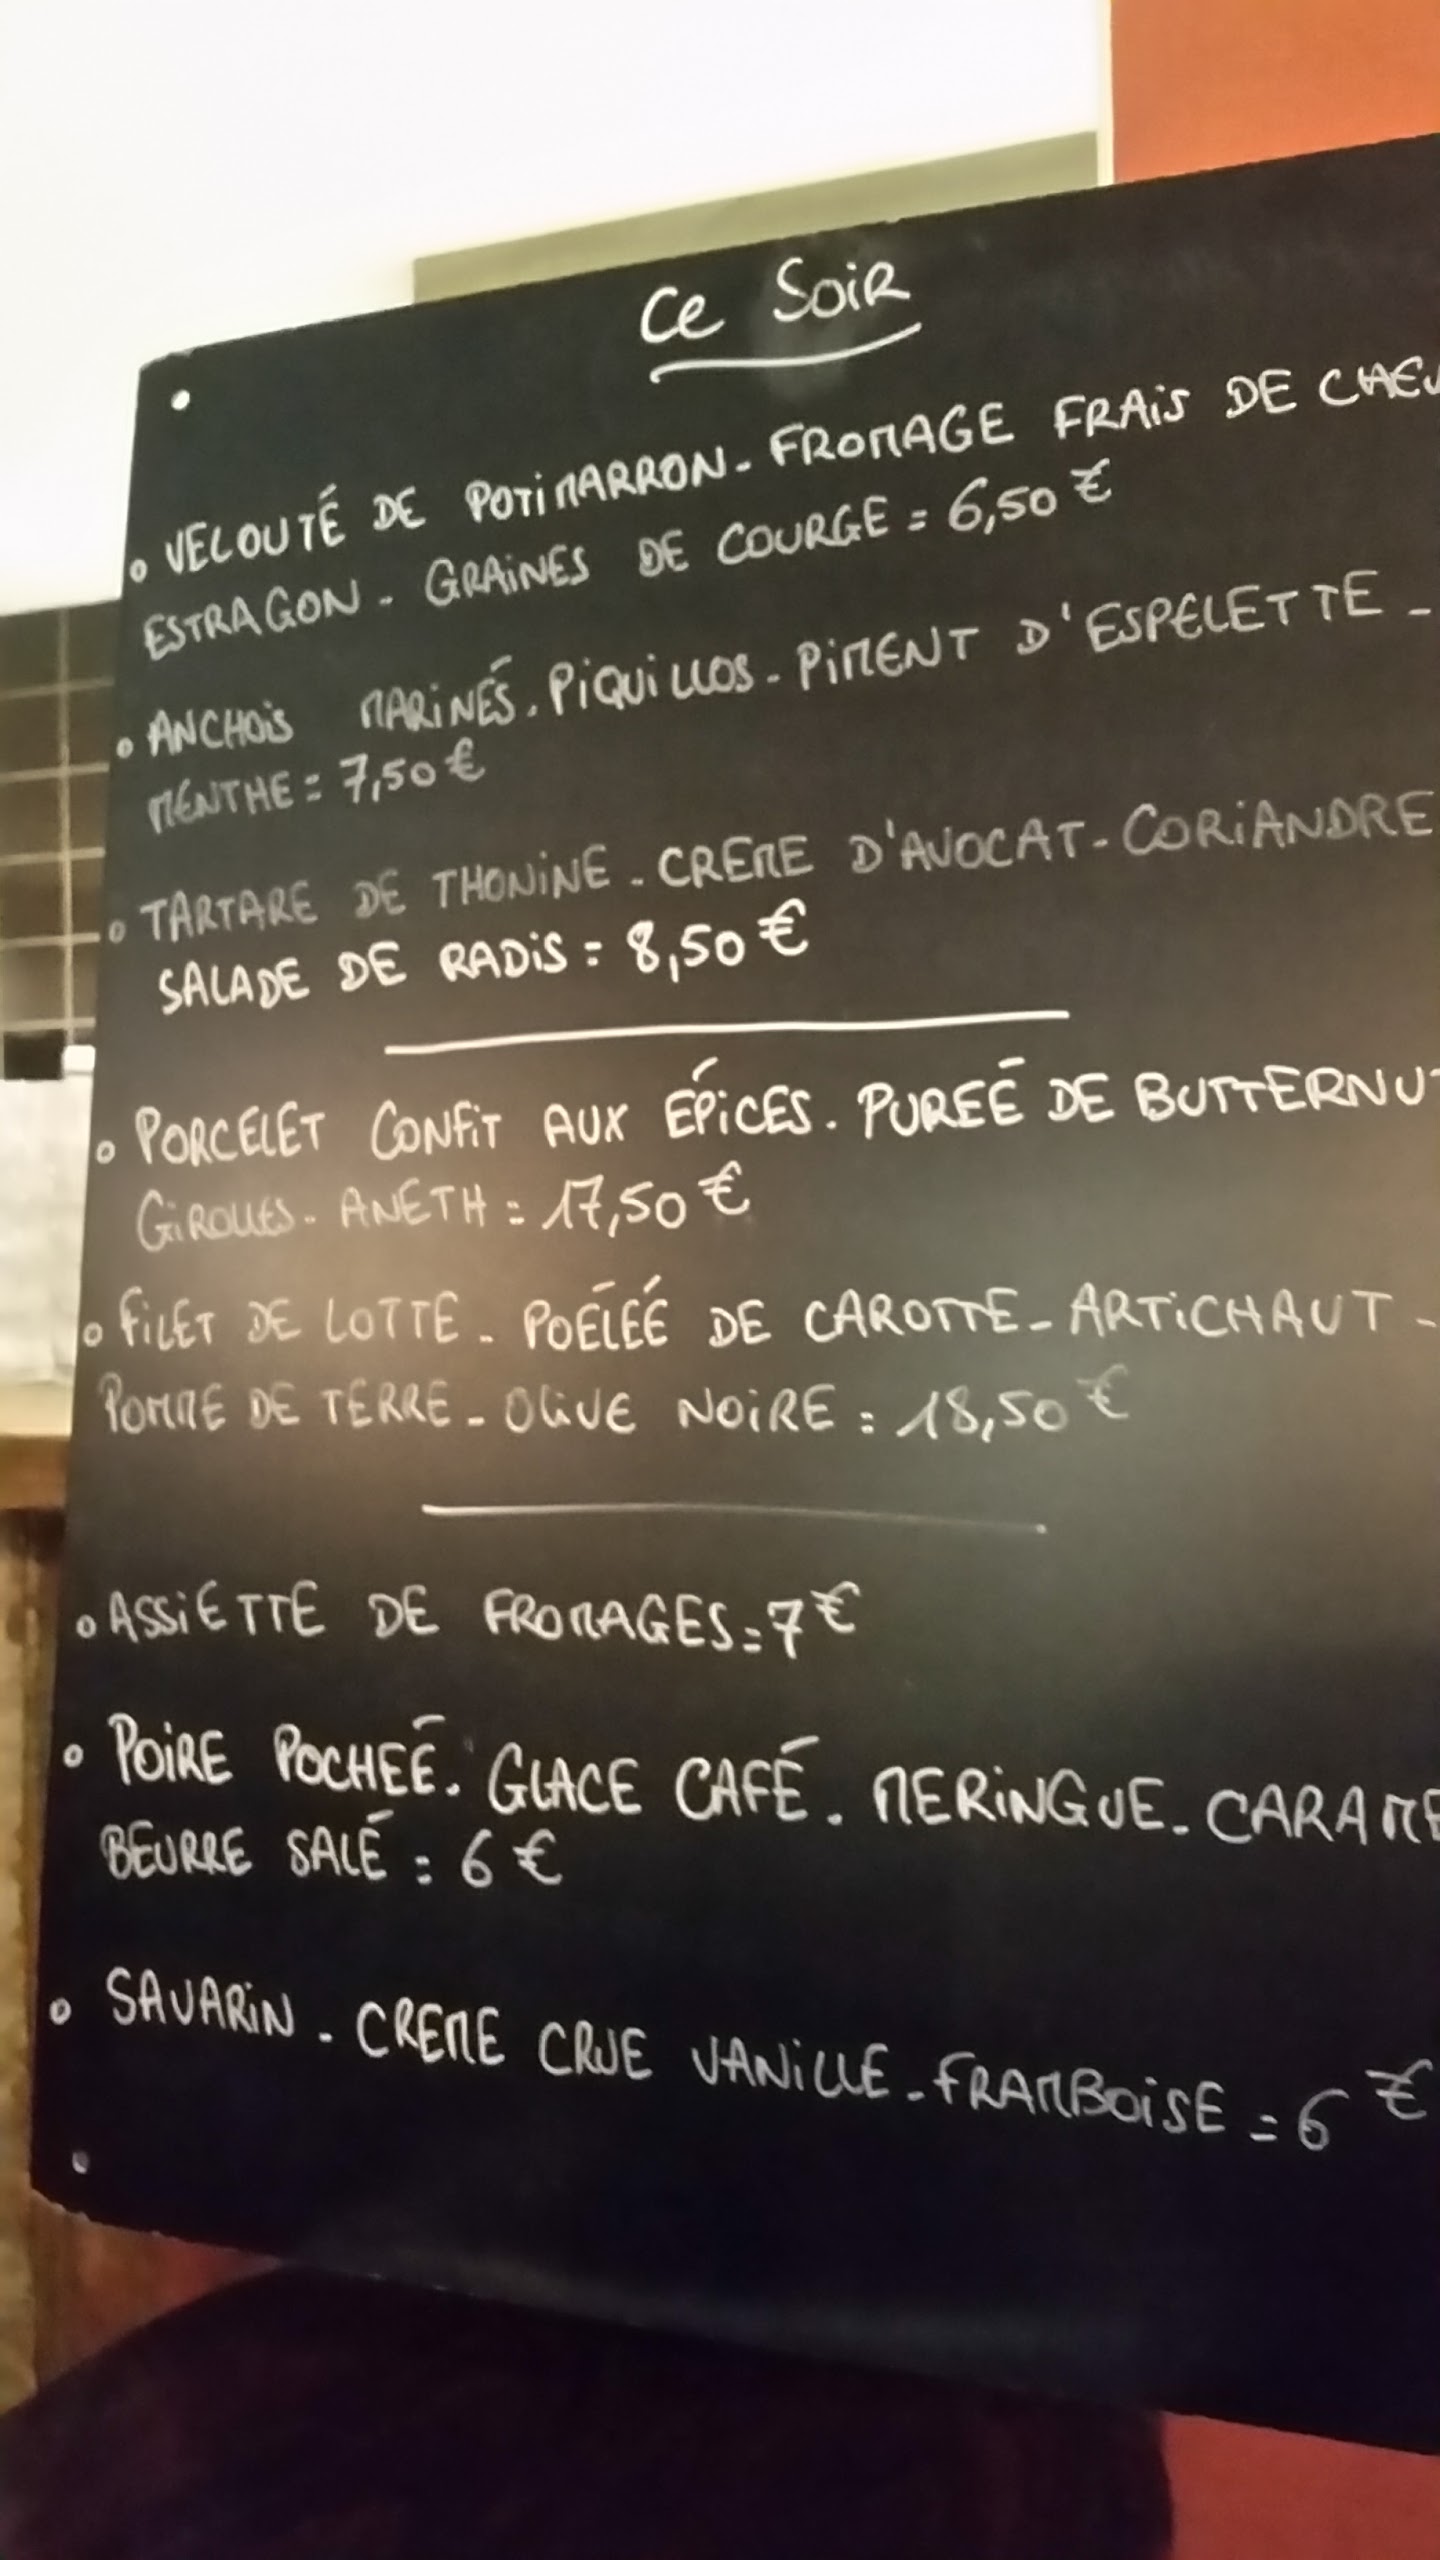 Ce Soir
VELOUTÉ DE POTIMARRON - FROMAGE FRAIS DE
ESTRAGON - GRAINES DE COURGE = 6,50 €
ANCHOIS MARINÉS - PIQUILLOS - PIMENT D'ESPELETTE -
MENTHE = 7,50 €
TARTARE DE THONINE - CREME D'AVOCAT - CORIANDRE
SALADE DE RADIS = 8,50 €
PORCELET CONFIT AUX ÉPICES - PUREÉ DE BUTTERNUT
GIROLLES - ANETH = 17,50 €
FILET DE LOTTE - POÉLÉÉ DE CAROTTE - ARTICHAUT -
POMME DE TERRE - OLIVE NOIRE = 18,50 €
ASSIETTE DE FROMAGES = 7 €
POIRE POCHEÉ - GLACE CAFÉ - MERINGUE -
BEURRE SALÉ = 6 €
SAVARIN - CREME CRUE VANILLE - FRAMBOISE = 6 €